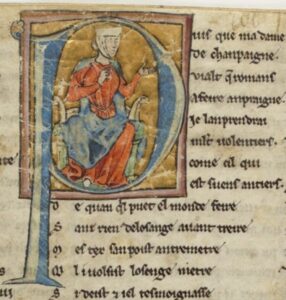 Puis que ma dame
de chanpaigne.
vialt q̃ romans
a feire anpraigne.
Je lanprendrai
mlt uolentiers.
come cil qui
est suens antiers.
D e quan quil puet el monde feire
S anz rien de losange auant treire
M es tex san poist antremetre
Q ui i uolsist losenge metre
S i deist et iel tesmoignasse